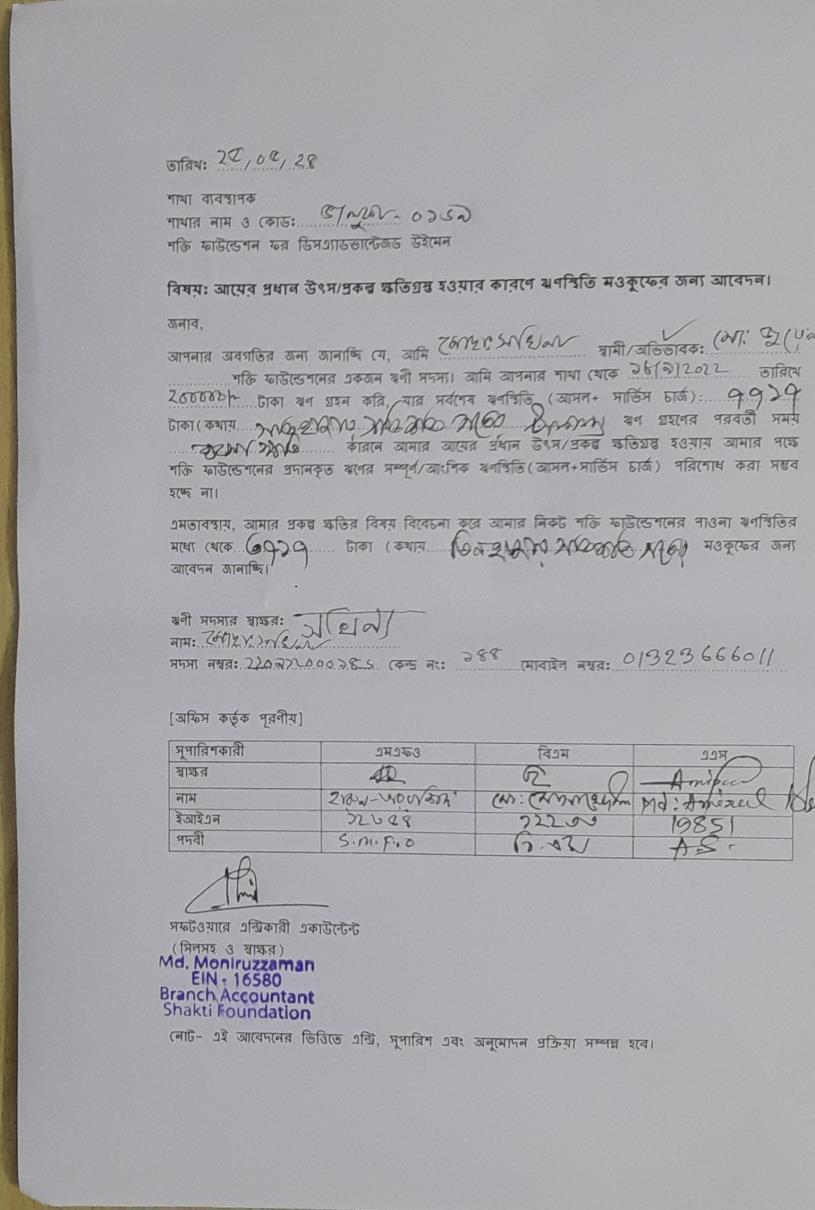 তারিখ: ২৫/০৫/২৪
শাখা ব্যবস্থাপক
শাখার নাম ও কোড:
শক্তি ফাউন্ডেশন ফর ডিসএ্যাডভান্টেজড উইমেন
বিষয়: আয়ের প্রধান উৎস/প্রকল্প ক্ষতিগ্রস্থ হওয়ার কারণে ঋণস্থিতি মওকুফের জন্য আবেদন।
জনাব,
আপনার অবগতির জন্য জানাচ্ছি যে, আমি মোছাঃ সখিনা স্বামী/অভিভাবক: মো:
শক্তি ফাউন্ডেশনের একজন ঋণী সদস্য। আমি আপনার শাখা থেকে তারিখে
টাকা ঋণ গ্রহন করি, যার সর্বশেষ ঋণস্থিতি (আসল+ সার্ভিস চার্জ): ৭৭২৭
টাকা(কথায় ঋণ গ্রহণের পরবর্তী সময়
কারনে আমার আয়ের প্রধান উৎস/প্রকল্প ক্ষতিগ্রস্থ হওয়ায় আমার পক্ষে
শক্তি ফাউন্ডেশনের প্রদানকৃত ঋণের সম্পূর্ণ/আংশিক ঋণস্থিতি(আসল+সার্ভিস চার্জ) পরিশোধ করা সম্ভব
হচ্ছে না।
এমতাবস্থায়, আমার প্রকল্প ক্ষতির বিষয় বিবেচনা করে আমার নিকট শক্তি ফাউন্ডেশনের পাওনা ঋণস্থিতির
মধ্যে থেকে ৩৭২৭ টাকা (কথায় তিন হাজার সাতশত মওকুফের জন্য
আবেদন জানাচ্ছি।
ঋণী সদস্যর স্বাক্ষর: সখিনা
নাম: মোছাঃ সখিনা
সদস্য নম্বর: কেন্দ্র নং: ১৪৪ মোবাইল নম্বর: 01323666011
[অফিস কর্তৃক পূরণীয়]
সুপারিশকারী এমএফও বিএম এএস
স্বাক্ষর
নাম মো: Md: Amirul
ইআইএন 19851
পদবী S.M.F.O বি.এম A.S.
সফটওয়্যারে এন্ট্রিকারী একাউন্টেন্ট
(সিলসহ ও স্বাক্ষর)
Md. Moniruzzaman
EIN - 16580
Branch Accountant
Shakti Foundation
নোট- এই আবেদনের ভিত্তিতে এন্ট্রি, সুপারিশ এবং অনুমোদন প্রক্রিয়া সম্পন্ন হবে।